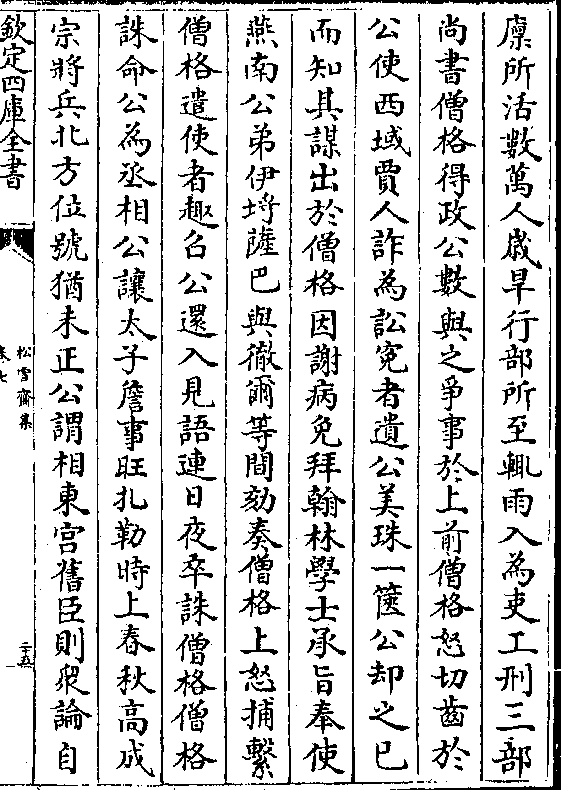 廪所活數萬人歲旱行部所至輒雨入為吏工刑三部
尚書僧格得政公數與之爭事於上前僧格怒切齒於
公使西域賈人詐為訟寃者遺公美珠一篋公却之已
而知其謀出於僧格因謝病免拜翰林學士承旨奉使
燕南公弟伊埓薩巴與徹爾等間劾奏僧格上怒捕繫
僧格遣使者趣召公還入見語連日夜卒誅僧格僧格
誅命公為丞相公讓太子詹事旺扎勒時上春秋高成
宗將兵北方位號猶未正公謂相東宫舊臣則衆論自
欽定四庫全書
松雪齋集
卷七
二十五